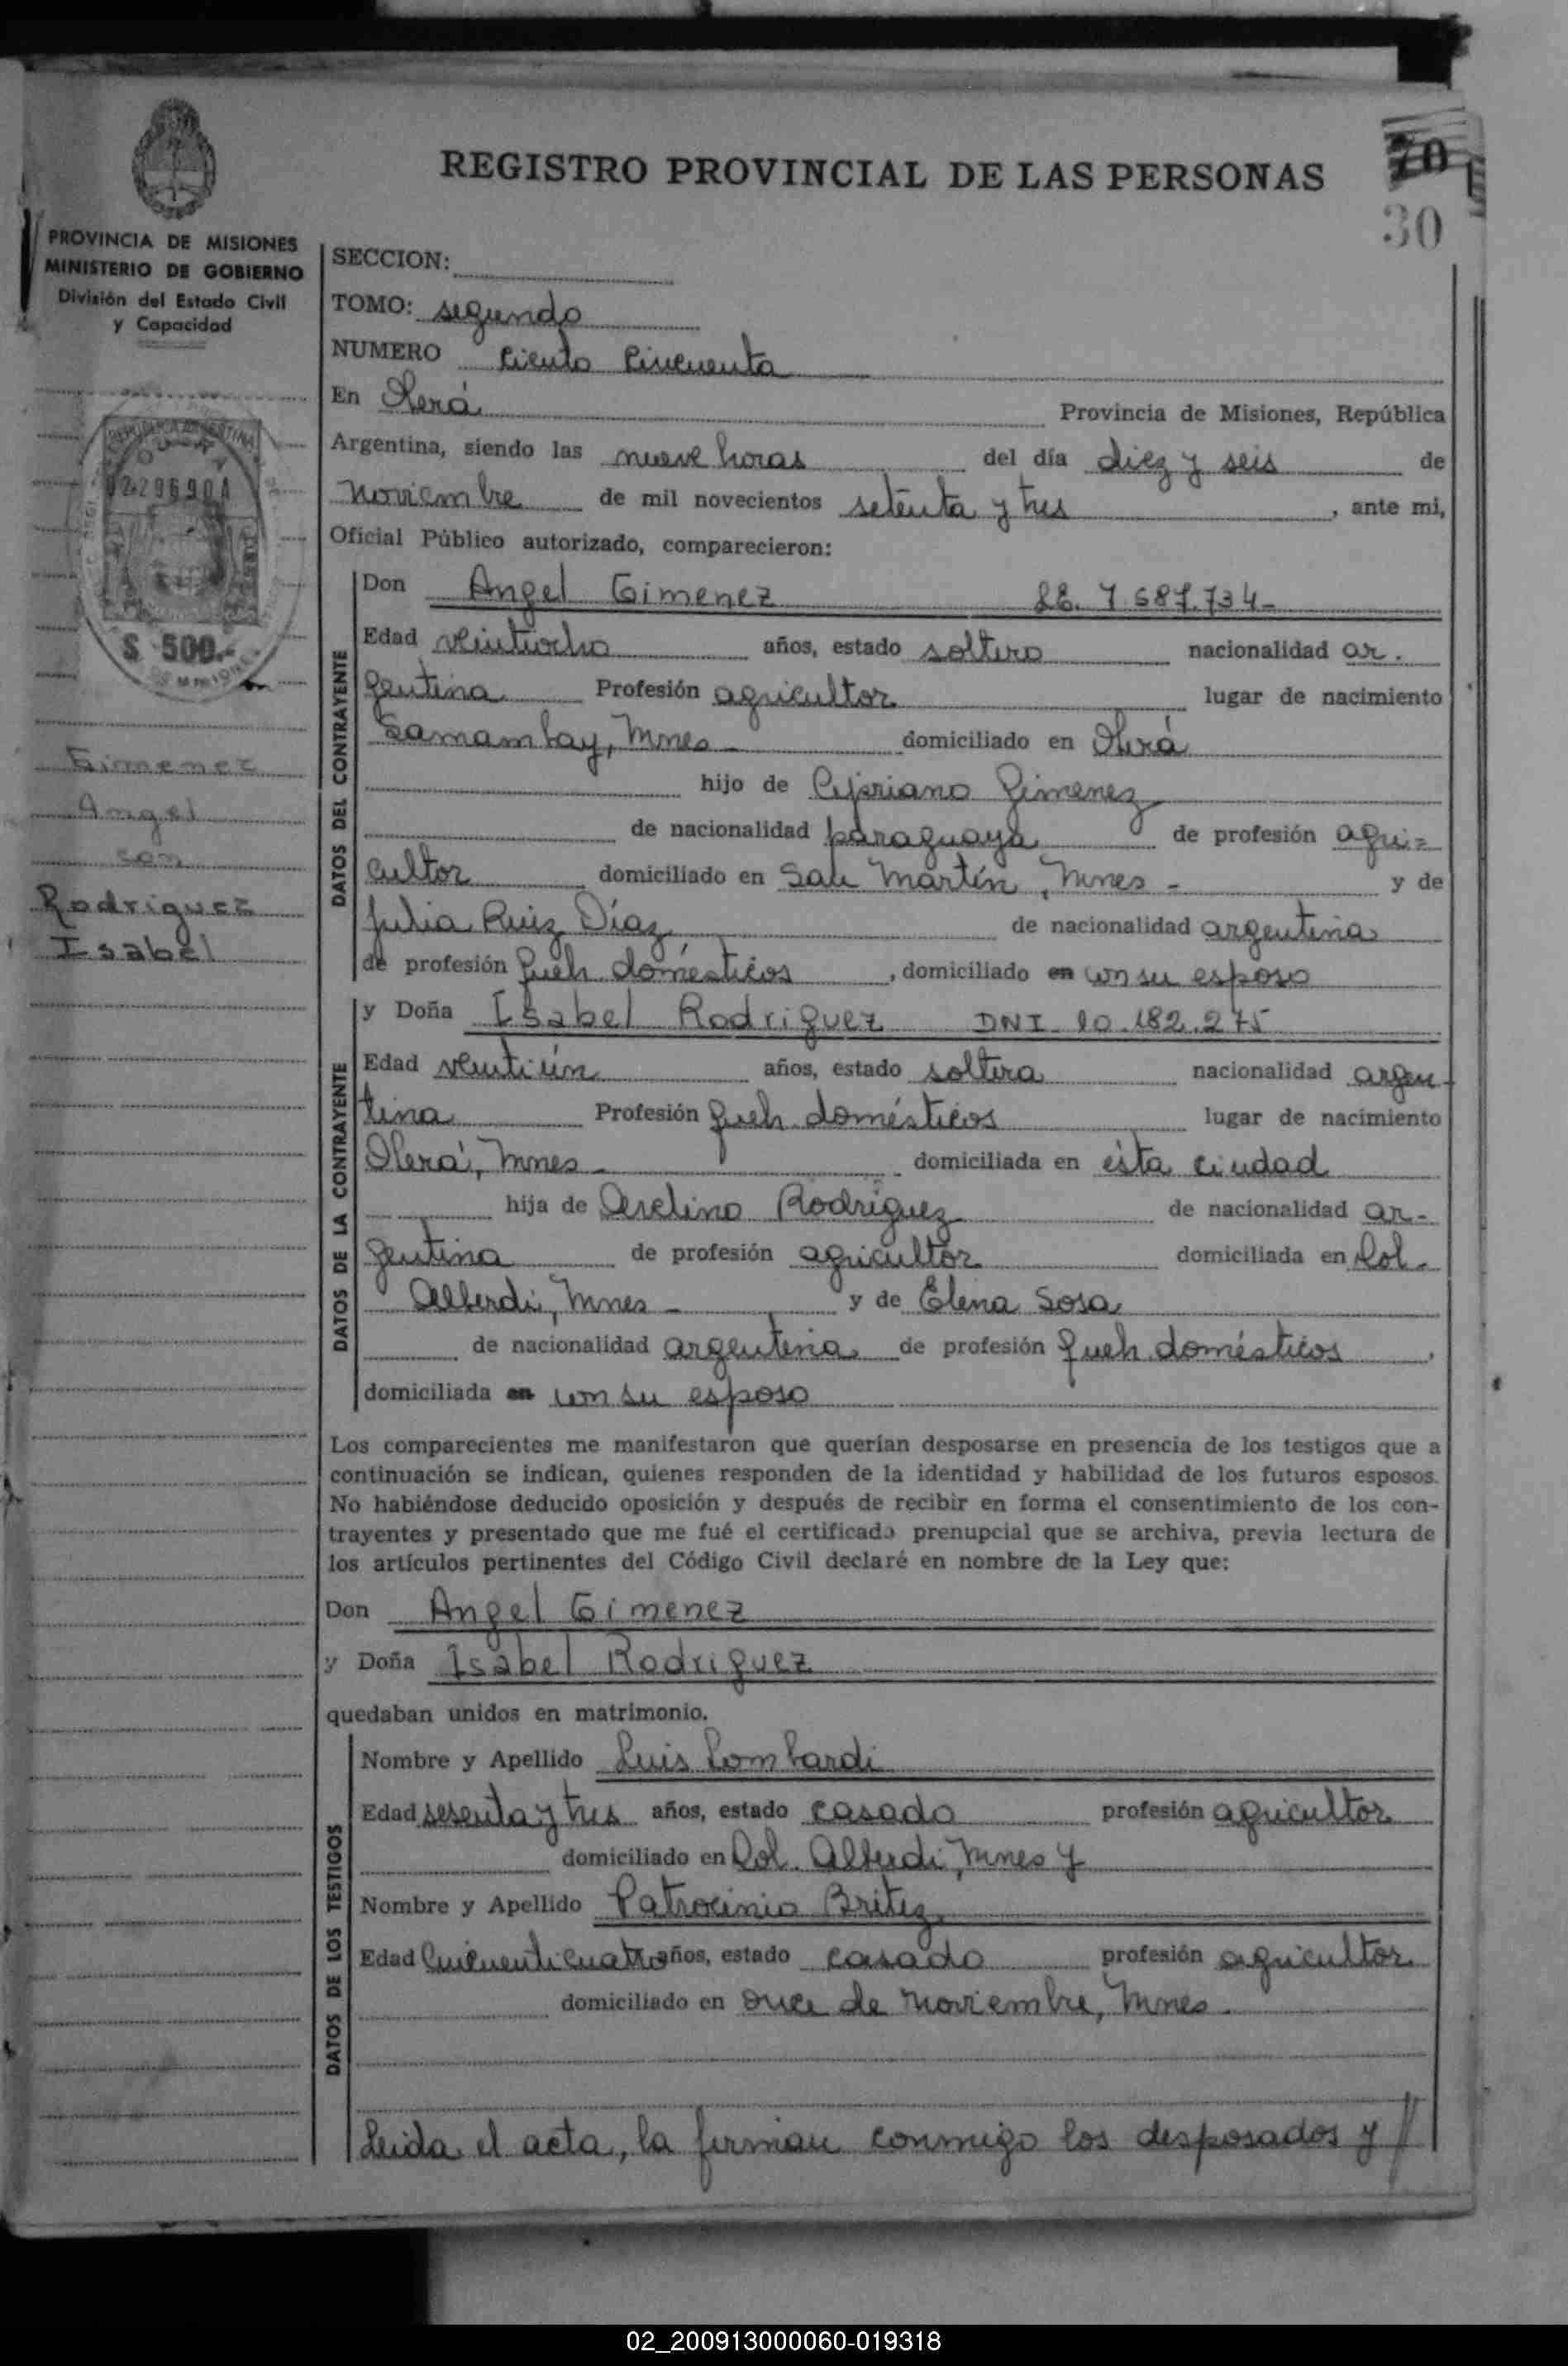 REGISTRO PROVINCIAL DE LAS PERSONAS
30
PROVINCIA DE MISIONES
MINISTERIO DE GOBIERNO
División del Estado Civil
y Capacidad
$ 500.-
Gimenez
Angel
con
Rodriguez
Isabel
SECCION:
TOMO: segundo
NUMERO ciento cincuenta
En Oberá Provincia de Misiones, República
Argentina, siendo las nueve horas del día diez y seis de
noviembre de mil novecientos setenta y tres, ante mi,
Oficial Público autorizado, comparecieron:
DATOS DEL CONTRAYENTE
Don Angel Gimenez LE. 7.687.734-
Edad veintiocho años, estado soltero nacionalidad ar.
gentina Profesión agricultor lugar de nacimiento
Samambay, Mnes- domiciliado en Oberá
hijo de Cipriano Gimenez
de nacionalidad paraguaya de profesión agri=
cultor domiciliado en San Martín, Mnes - y de
Julia Ruiz Díaz de nacionalidad argentina
de profesión queh. domésticos, domiciliado en con su esposo
DATOS DE LA CONTRAYENTE
y Doña Isabel Rodriguez DNI 10.182.275
Edad veintiún años, estado soltera nacionalidad argen
tina Profesión queh. domésticos lugar de nacimiento
Oberá, Mnes- domiciliada en ésta ciudad
hija de Avelino Rodriguez de nacionalidad ar-
gentina de profesión agricultor domiciliada en Col.
Alberdi, Mnes- y de Elena Sosa
de nacionalidad argentina de profesión queh domésticos,
domiciliada en con su esposo
Los comparecientes me manifestaron que querían desposarse en presencia de los testigos que a
continuación se indican, quienes responden de la identidad y habilidad de los futuros esposos.
No habiéndose deducido oposición y después de recibir en forma el consentimiento de los con-
trayentes y presentado que me fué el certificado prenupcial que se archiva, previa lectura de
los artículos pertinentes del Código Civil declaré en nombre de la Ley que:
Don Angel Gimenez
y Doña Isabel Rodriguez
quedaban unidos en matrimonio.
DATOS DE LOS TESTIGOS
Nombre y Apellido Luis Lombardi
Edad sesenta y tres años, estado casado profesión agricultor
domiciliado en Col. Alberdi, Mnes y
Nombre y Apellido Patrocinio Britez
Edad cincuenticuatro años, estado casado profesión agricultor
domiciliado en once de noviembre, Mnes.
Leida el acta, la firman conmigo los desposados y //
02_200913000060-019318